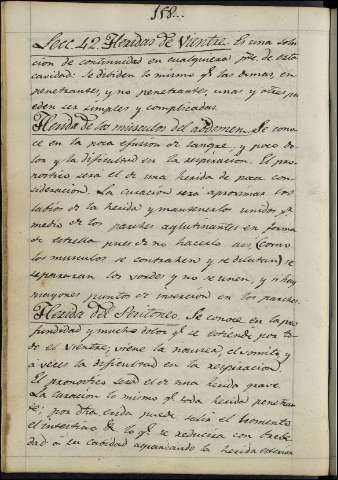 158..
Lecc. 42. Heridas de Vientre. Es una solu-
cion de continuidad en cualquiera pte. de esta
cavidad: se dibiden lo mismo qe. las demas, en
penetrantes, y no penetrantes, unas y otras pu-
eden ser simples y complicadas.
Herida de los músculos del abdomen. Se cono-
ce en la poca efusion de sangre, y poco do-
lor y la dificultad en la respiracion. El pro-
nostico será el de una herida de poca con-
sideracion. La curacion será aproximar los
labios de la herida y mantenerlos unidos pr.
medio de los parches aglutinantes en forma
de estrella pues de no hacerlo asi (como
los musculos se contrahen y se dilatan) se
separaran los vordes y no se unen, y si hay
mayores puntos de insercion en los parches.
Herida del Peritoneo. Se conoce en la pro-
fundidad y mucho dolor qe. se estiende por to-
do el Vientre, viene la nausea, el vomito y
á veces la dificultad en la respiracion.
El pronostico será el de una herida grave.
La curacion lo mismo qe. toda herida penetran-
te; por dha. herida puede salir el Omento
el intestino &a. lo qe. se reducira con breve-
dad á su cavidad agrandando la herida exterior